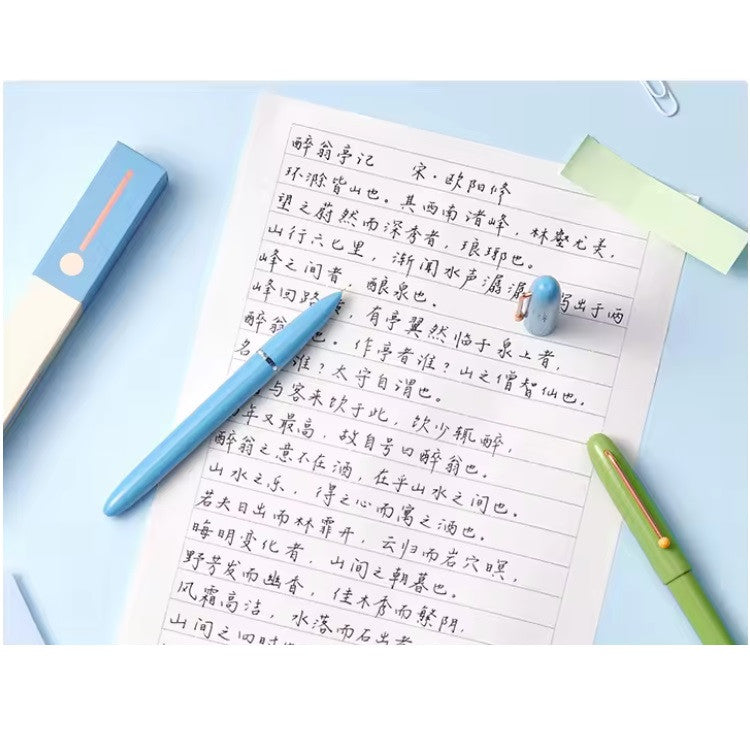 醉翁亭记 宋·欧阳修
环滁皆山也。其西南诸峰，林壑尤美，
望之蔚然而深秀者，琅琊也。
山行六七里，渐闻水声潺潺 写出于两
峰之间者，酿泉也。
峰回路 ，有亭翼然临于泉上者，
醉翁 也。作亭者谁？山之僧智仙也。
名 谁？太守自谓也。
与客来饮于此，饮少辄醉，
年又最高，故自号曰醉翁也。
醉翁之意不在酒，在乎山水之间也。
山水之乐，得之心而寓之酒也。
若夫日出而林霏开，云归而岩穴暝，
晦明变化者，山间之朝暮也。
野芳发而幽香，佳木秀而繁阴，
风霜高洁，水落而石出者
山间之四时